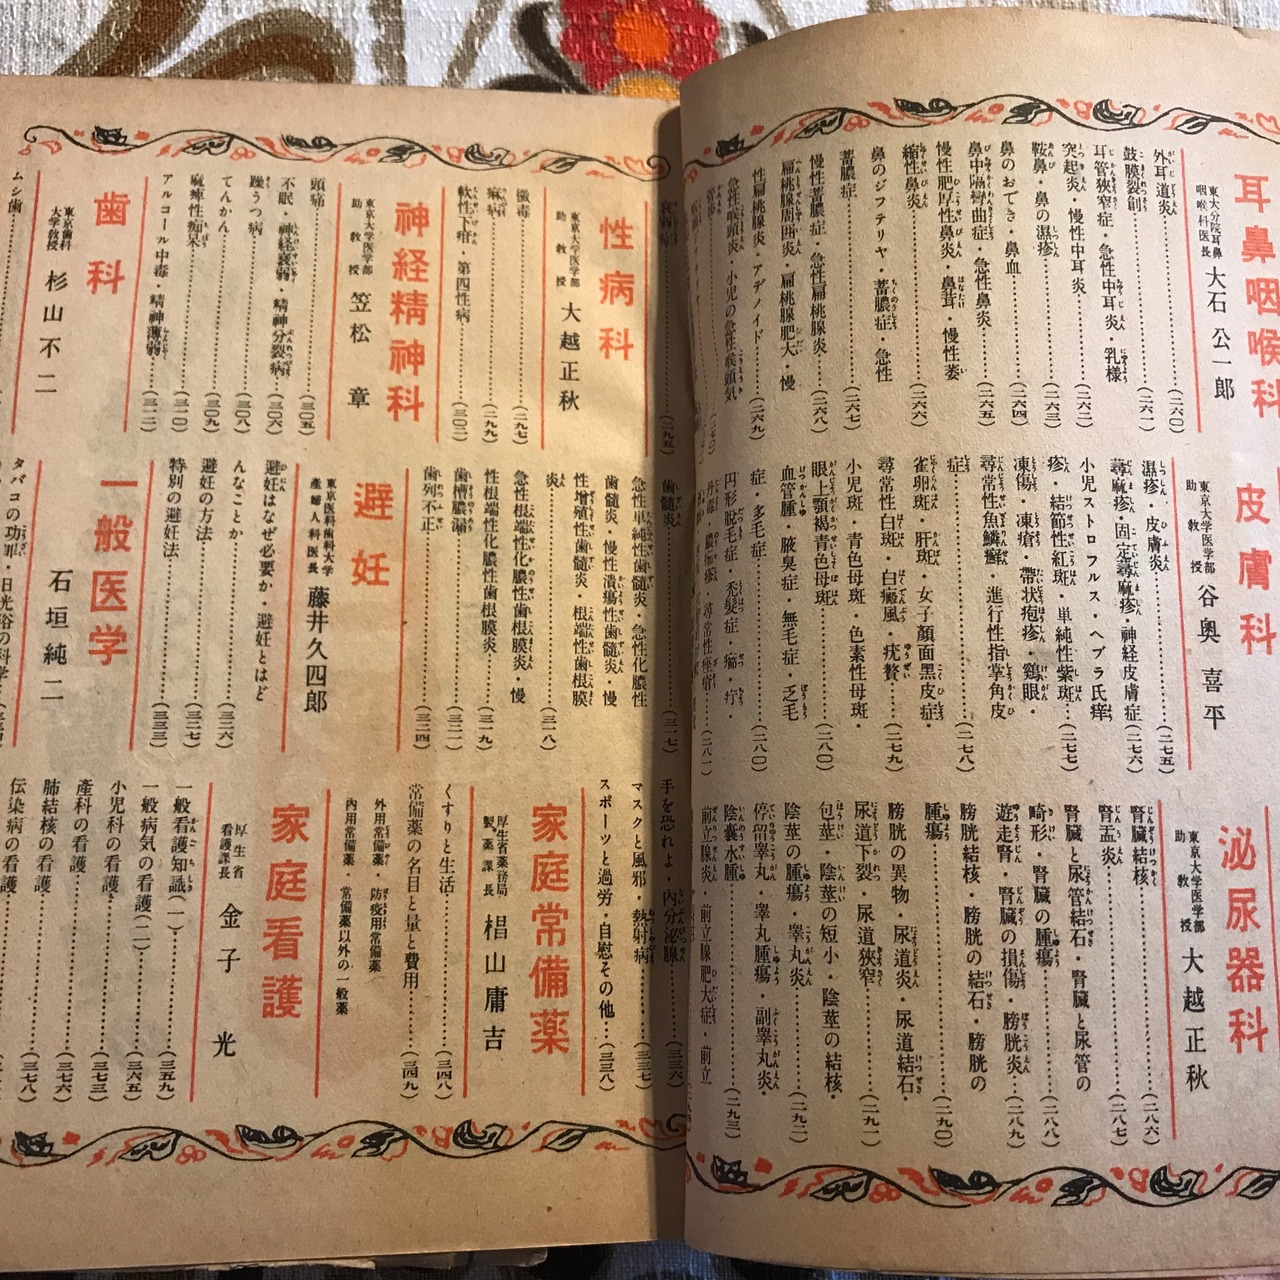 耳鼻咽喉科
東大分院耳鼻
咽喉科医長 大石公一郎
外耳道炎……(二六〇)
鼓膜裂創……(二六一)
耳管狭窄症・急性中耳炎・乳様
突起炎・慢性中耳炎……(二六二)
鞍鼻・鼻の濕疹……(二六三)
鼻のおでき・鼻血……(二六四)
鼻中隔彎曲症・急性鼻炎……(二六五)
慢性肥厚性鼻炎・鼻茸・慢性萎
縮性鼻炎……(二六六)
鼻のジフテリヤ・蓄膿症・急性
蓄膿症……(二六七)
慢性蓄膿症・急性扁桃腺炎……(二六八)
扁桃腺周囲炎・扁桃腺肥大・慢
性扁桃腺炎・アデノイド……(二六九)
急性喉頭炎・小児の急性喉頭気
皮膚科
東京大学医学部
助教授 谷奥喜平
濕疹・皮膚炎……(二七五)
蕁麻疹・固定蕁麻疹・神経皮膚症(二七六)
小児ストロフルス・ヘブラ氏痒
疹・結節性紅斑・単純性紫斑…(二七七)
凍傷・凍瘡・帯状疱疹・鶏眼・
尋常性魚鱗癬・進行性指掌角皮
症……(二七八)
雀卵斑・肝斑・女子顔面黒皮症・
尋常性白斑・白癜風・疣贅…(二七九)
小児斑・青色母斑・色素性母斑・
眼上顎褐青色母斑……(二八〇)
血管腫・腋臭症・無毛症・乏毛
症・多毛症……(二八〇)
円形脱毛症・禿髪症・癤・疔・
丹毒・膿痂疹・尋常性痤瘡……(二八一)
泌尿器科
東京大学医学部
助教授 大越正秋
腎臓結核……(二八六)
腎盂炎……(二八七)
腎臓と尿管結石・腎臓と尿管の
畸形・腎臓の腫瘍……(二八八)
遊走腎・腎臓の損傷・膀胱炎…(二八九)
膀胱結核・膀胱の結石・膀胱の
腫瘍……(二九〇)
膀胱の異物・尿道炎・尿道結石・
尿道下裂・尿道狭窄……(二九一)
包茎・陰茎の短小・陰茎の結核・
陰茎の腫瘍・睾丸炎……(二九二)
停留睾丸・睾丸腫瘍・副睾丸炎・
陰囊水腫……(二九三)
前立腺炎・前立腺肥大症・前立
(二九五)
性病科
東京大学医学部
助教授 大越正秋
黴毒……(二九七)
麻病……(二九九)
軟性下疳・第四性病……(三〇三)
神経精神科
東京大学医学部
助教授 笠松章
頭痛……(三〇五)
不眠・神経衰弱・精神分裂病…(三〇六)
躁うつ病……(三〇八)
てんかん……(三〇九)
麻痺性痴呆……(三一〇)
アルコール中毒・精神薄弱……(三一二)
歯科
東京歯科
大学教授 杉山不二
ムシ歯……
歯髄炎……(三一七)
急性単純性歯髄炎・急性化膿性
歯髄炎・慢性潰瘍性歯髄炎・慢
性増殖性歯髄炎・根端性歯根膜
炎……(三一八)
急性根端性化膿性歯根膜炎・慢
性根端性化膿性歯根膜炎……(三一九)
歯槽膿漏……(三二一)
歯列不正……(三二四)
避妊
東京医科歯科大学
産婦人科医長 藤井久四郎
避妊はなぜ必要か・避妊とはど
んなことか……(三二六)
避妊の方法……(三二七)
特別の避妊法……(三三三)
一般医学
石垣純二
タバコの功罪・日光浴の科学…
手を恐れよ・内分泌腺……(三三六)
マスクと風邪・熱射病……(三三七)
スポーツと過労・自慰その他…(三三八)
家庭常備薬
厚生省薬務局
製薬課長 椙山庸吉
くすりと生活……(三四八)
常備薬の名目と量と費用……(三四九)
外用常備薬・防疫用常備薬
内用常備薬・常備薬以外の一般薬
家庭看護
厚生省
看護課長 金子光
一般看護知識(一)……(三五九)
一般病気の看護(二)……(三六五)
小児科の看護……(三七三)
産科の看護……(三七六)
肺結核の看護……(三七八)
伝染病の看護……